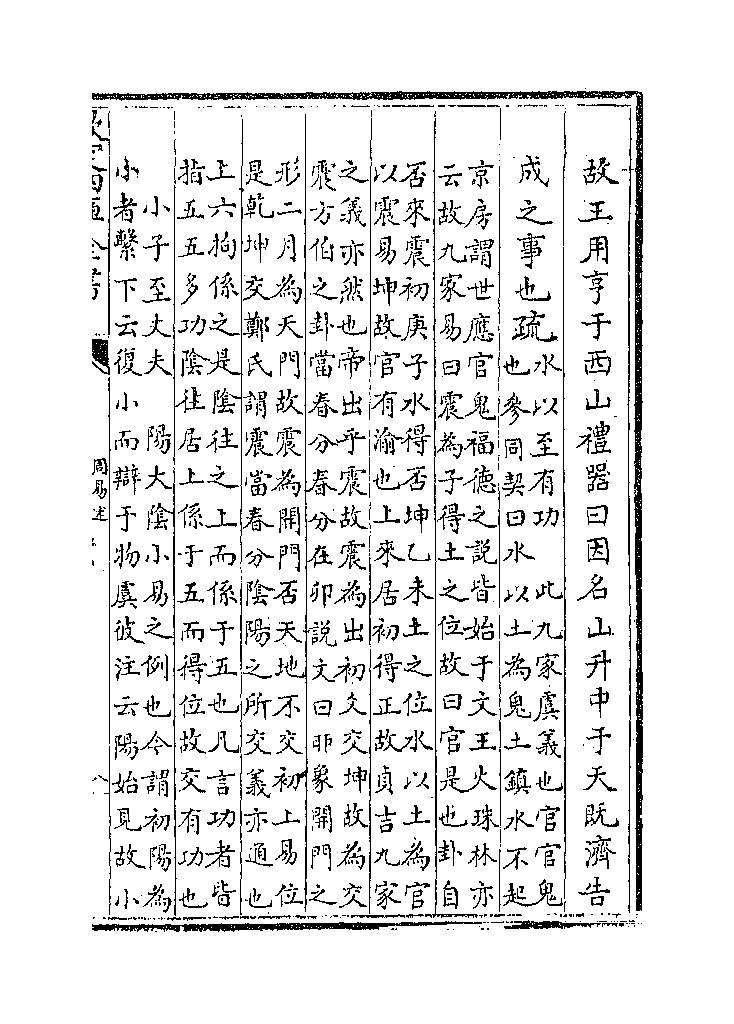 故王用亨于西山禮器曰因名山升中于天既濟告
成之事也疏
水以至有功 此九家虞義也官官鬼
也參同契曰水以土為鬼土鎮水不起
京房謂世應官鬼福德之説皆始于文王火珠林亦
云故九家易曰震為子得土之位故曰官是也卦自
否來震初庚子水得否坤乙未土之位水以土為官
以震易坤故官有渝也上來居初得正故貞吉九家
之義亦然也帝出乎震故震為出初爻交坤故為交
震方伯之卦當春分春分在卯説文曰丣象開門之
形二月為天門故震為開門否天地不交初上易位
是乾坤交鄭氏謂震當春分陰陽之所交義亦通也
上六拘係之是陰往之上而係于五也凡言功者皆
指五五多功陰往居上係于五而得位故交有功也
小子至丈夫 陽大陰小易之例也今謂初陽為
小者繫下云復小而辯于物虞彼注云陽始見故小
欽定四庫全書
周易述